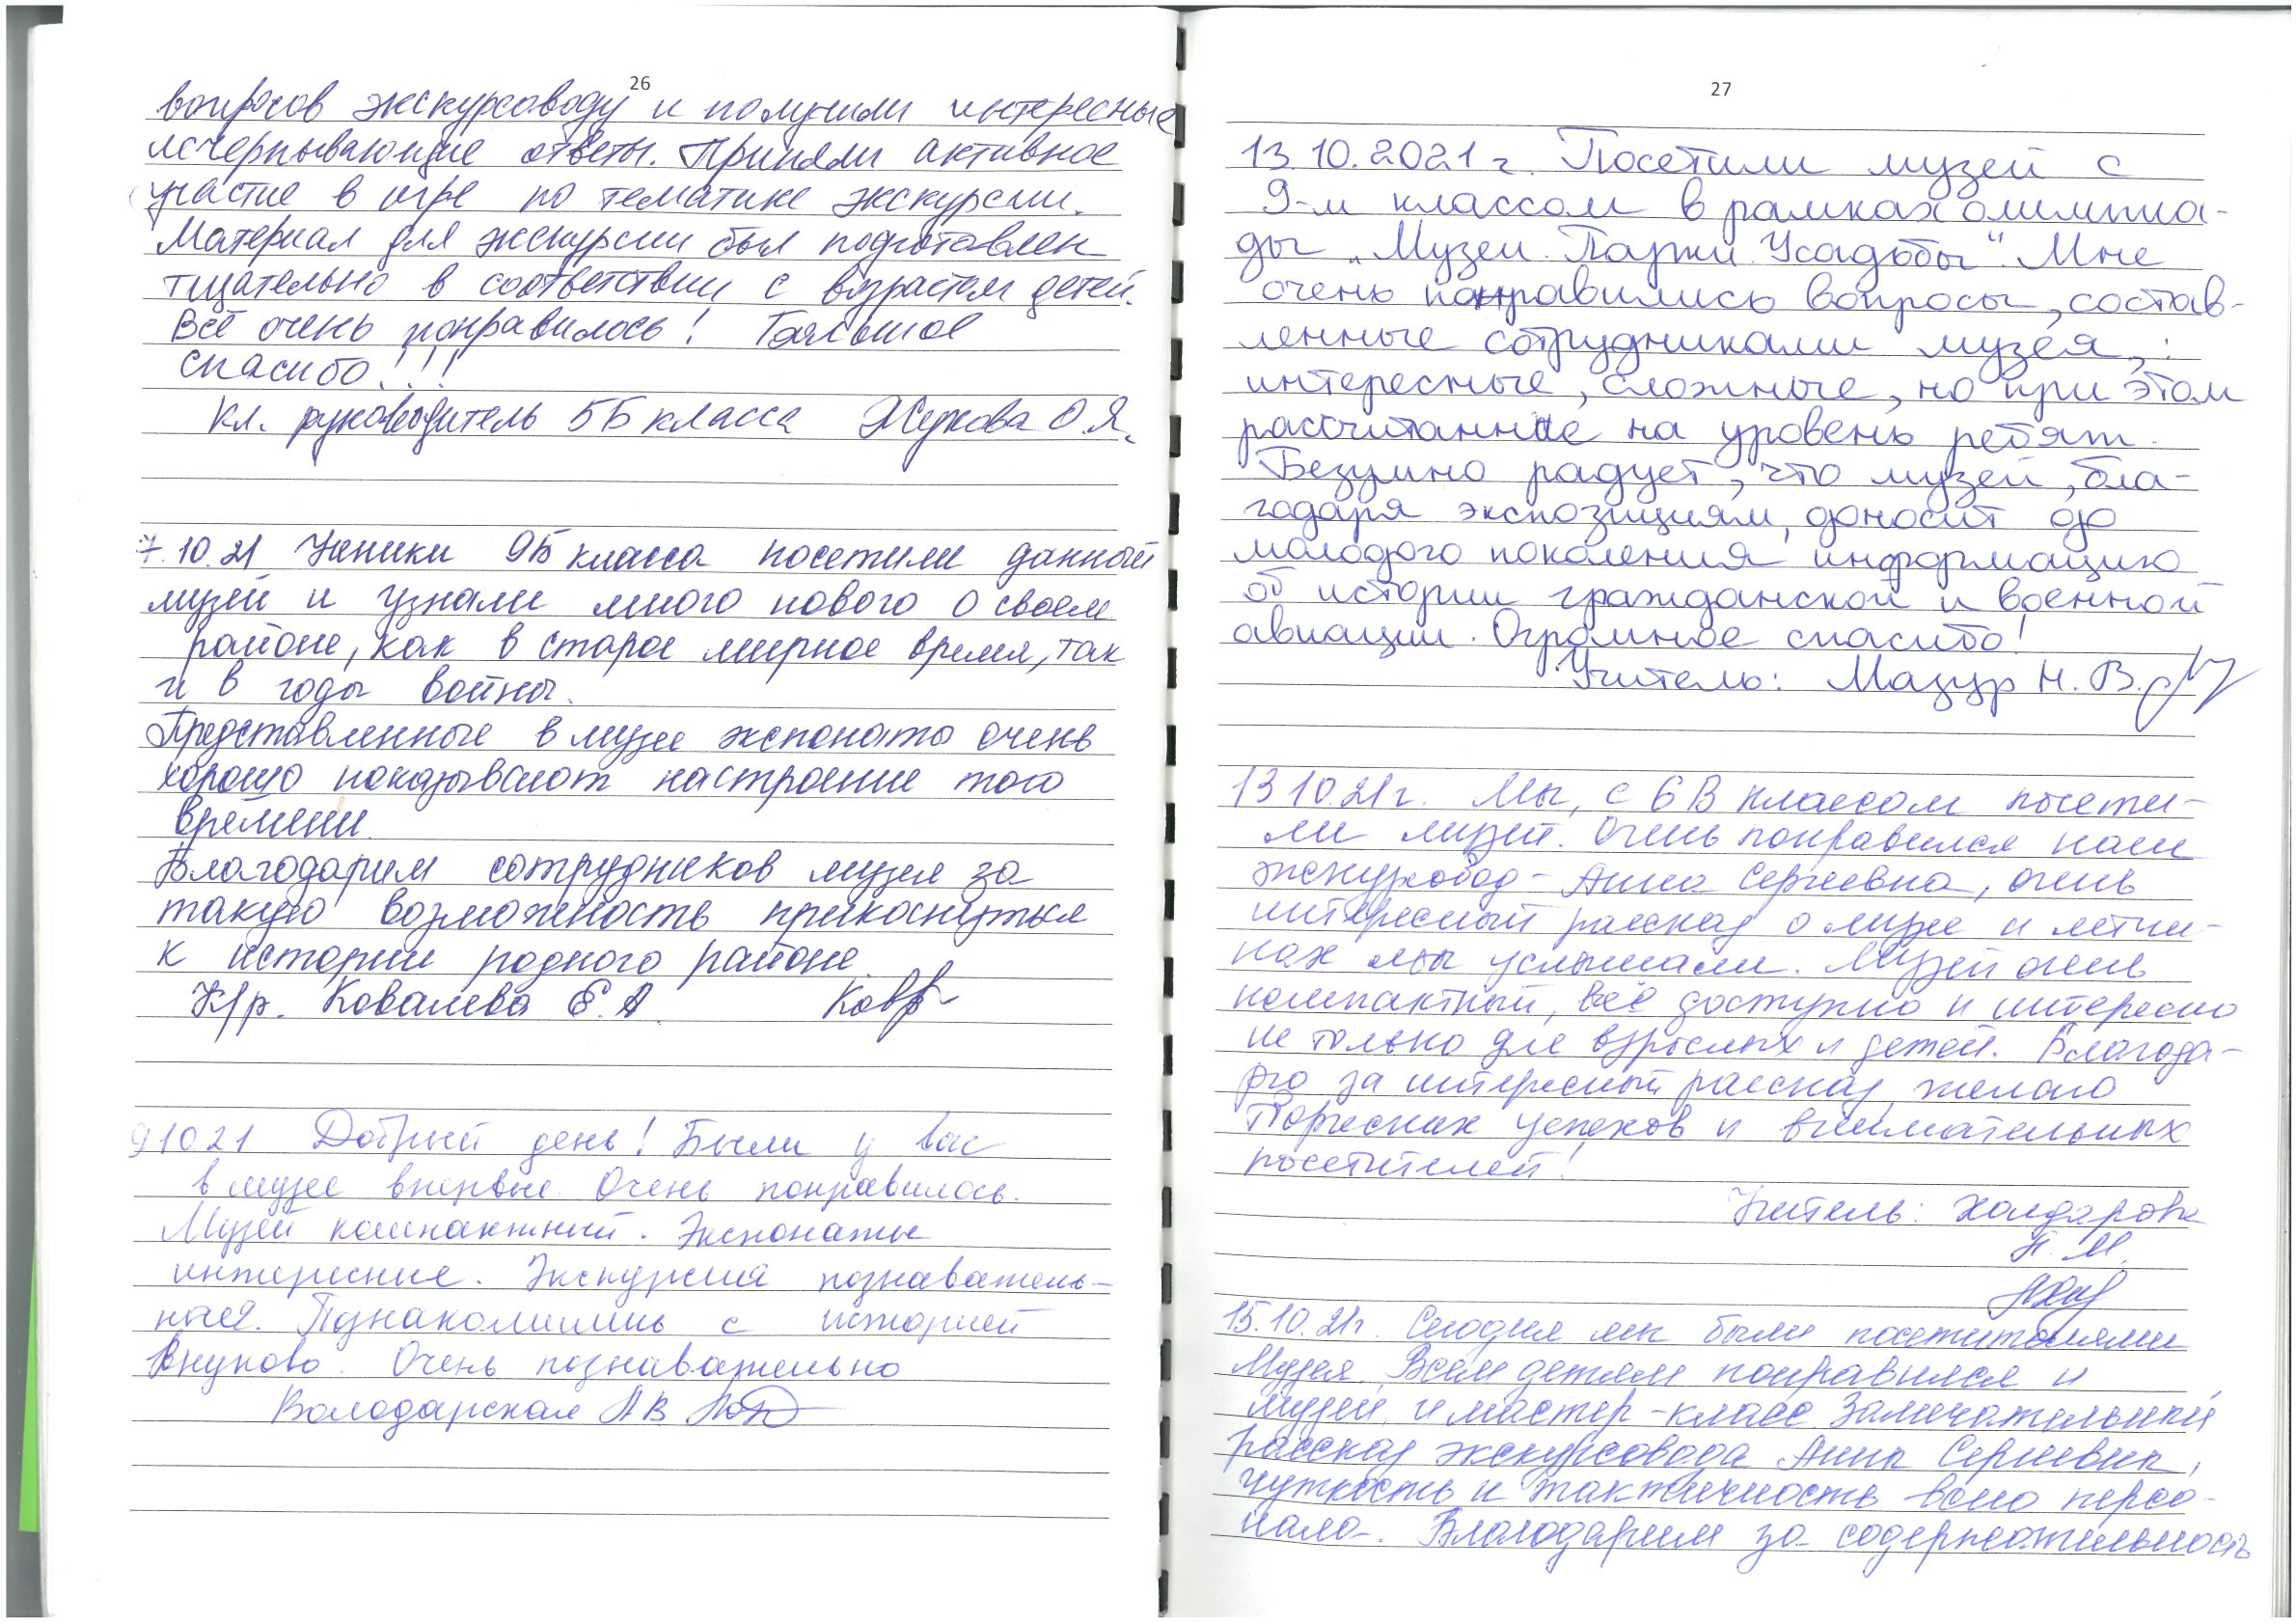 26
вопросов экскурсоводу и получили интересные
исчерпывающие ответы. Приняли активное
участие в игре по тематике экскурсии.
Материал для экскурсии был подготовлен
тщательно в соответствии с возрастом детей.
Всё очень понравилось! Большое
спасибо!!!
Кл. руководитель 5Б класса Жукова О.Я.
7.10.21 Ученики 9Б класса посетили данный
музей и узнали много нового о своем
районе, как в старое мирное время, так
и в годы войны.
Представленные в музее экспонаты очень
хорошо показывают настроение того
времени.
Благодарим сотрудников музея за
такую возможность прикоснуться
к истории родного района.
К/р. Ковалева Е.А.
9 10 21 Добрый день! Были у вас
в музее впервые. Очень понравилось.
Музей компактный. Экспонаты
интересные. Экскурсия познаватель-
ная. Познакомились с историей
Внуково. Очень познавательно
Володарская АВ
27
13.10.2021 г. Посетили музей с
9-м классом в рамках олимпиа-
ды "Музеи. Парки. Усадьбы". Мне
очень понравились вопросы, состав-
ленные сотрудниками музея,:
интересные, сложные, но при этом
рассчитанные на уровень ребят.
Безумно радует, что музей, бла-
годаря экспозициям, доносит до
молодого поколения информацию
об истории гражданской и военной
авиации. Огромное спасибо!
Учитель: Мазур Н.В.
13 10.21г. Мы, с 6 В классом посети-
ли музей. Очень понравился наш
экскурсовод - Анна Сергеевна, очень
интересный рассказ о музее и летчи-
ках мы услышали. Музей очень
компактный, всё доступно и интересно
не только для взрослых и детей. Благода-
рю за интересный рассказ, желаю
Творческих успехов и внимательных
посетителей!
Учитель: Халдарова
Н. М.
15.10.21г. Сегодня мы были посетителями
Музея. Всем детям понравился и
музей, и мастер-класс. Замечательный
рассказ экскурсовода Анны Сергеевны,
чуткость и тактичность всего персо-
нала. Благодарим за содержательность